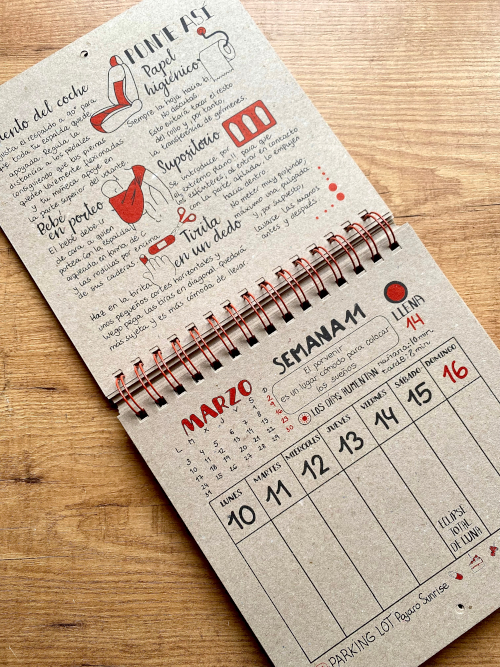 PONME ASÍ
ento del coche
respaldo a 90° para
que toda tu espalda quede
apoyada. Regula la
distancia a los pedales
consiguiendo que tus piernas
queden levemente flexionadas
y tu muñeca apoye en
la parte superior del volante.
Papel
higiénico
Siempre la hoja hacia ti.
No discutas.
Esto evitará tocar el resto
del rollo y por tanto,
la transferencia de gérmenes.
Supositorio
Se introduce por
el extremo plano!! para que
los esfínteres, al entrar en contacto
con la parte afilada, lo empuje
hacia dentro.
No meter muy profundo,
máximo una pulgada
Y, por supuesto,
lavarse las manos
antes y después
Bebé
en porteo
El bebé debe ir
de cara a quien
portea con la espalda
arqueada en forma de C
y las rodillas por encima
de sus caderas.
Tirita
en un dedo
Haz en la tirita
unos pequeños cortes horizontales y
luego pega las tiras en diagonal. Quedará
más sujeta y es más cómoda de llevar.
MARZO
L M X J V S D
1 2
3 4 5 6 7 8 9
10 11 12 13 14 15 16
17 18 19 20 21 22 23
24 25 26 27 28 29 30
31
SEMANA 11
El porvenir
es un lugar cómodo para colocar
los sueños
LOS DÍAS AUMENTAN
mañana: 10 min
tarde: 8 min
LLENA
14
LUNES MARTES MIÉRCOLES JUEVES VIERNES SÁBADO DOMINGO
10 11 12 13 14 15 16
ECLIPSE
TOTAL
DE LUNA
PARKING LOT Pájaro Sunrise